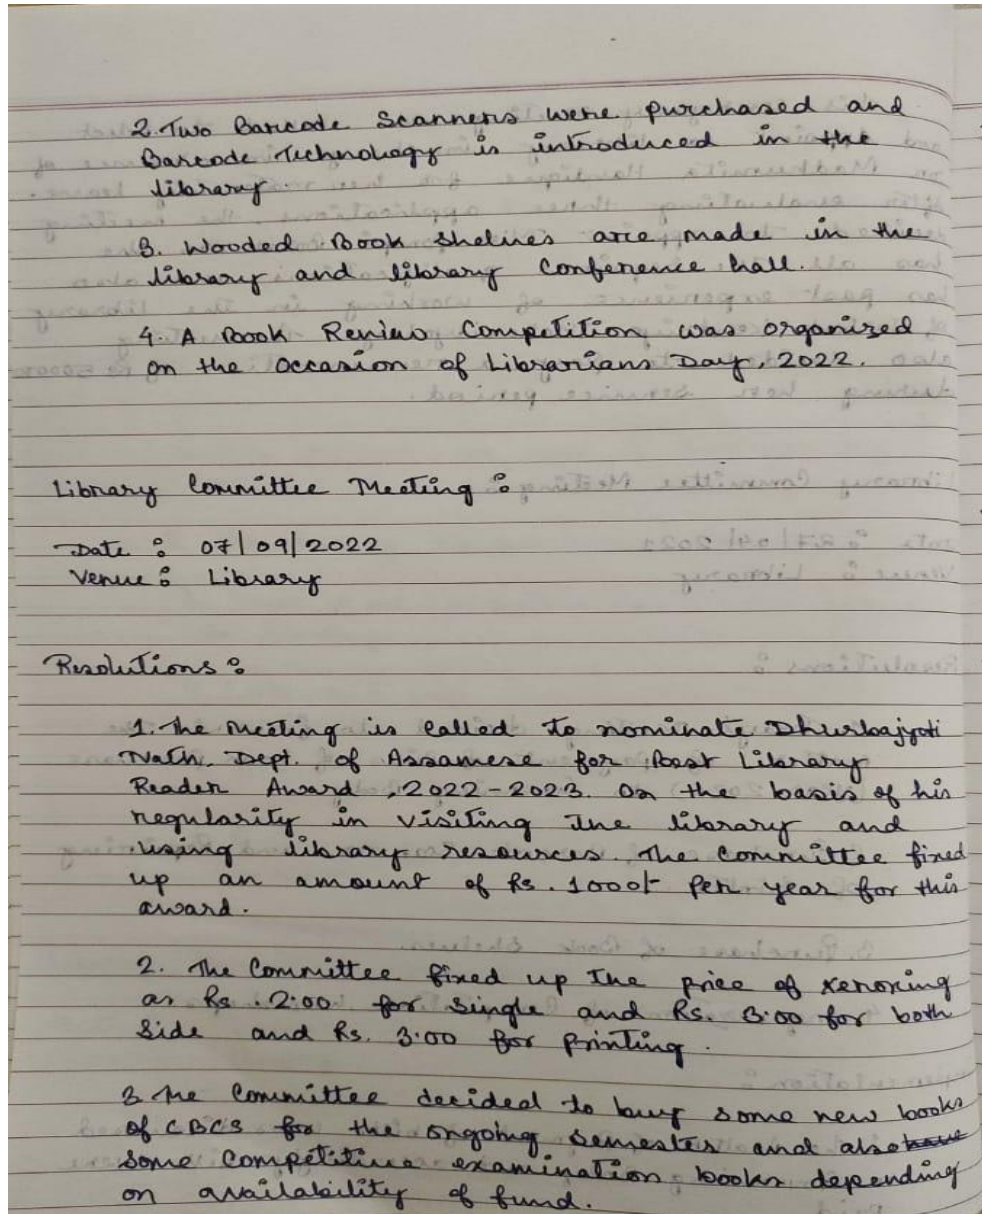 2. Two Barcode Scanners were purchased and
Barcode Technology is introduced in the
library.
3. Wooded Book Shelves are made in the
library and library Conference hall.
4. A Book Review Competition was organized
on the Occasion of Librarians Day, 2022.
Library Committee Meeting :
Date : 07/09/2022
Venue : Library
Resolutions :
1. The meeting is called to nominate Dhurbajyoti
Nath, Dept. of Assamese for Best Library
Reader Award, 2022-2023. On the basis of his
regularity in visiting the library and
using library resources. The Committee fixed
up an amount of Rs. 1000/- per year for this
award.
2. The Committee fixed up the price of xeroxing
as Rs. 2.00 for single and Rs. 3.00 for both
Side and Rs. 3.00 for printing.
3 The Committee decided to buy some new books
of CBCS for the ongoing semester and also have
some Competitive examination books depending
on availability of fund.